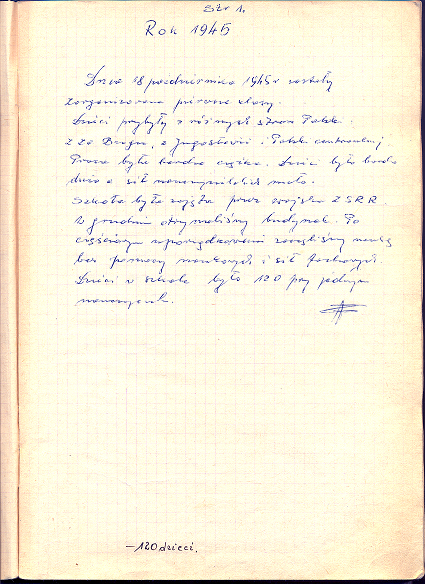 Str 1.
Rok 1945
Dnia 18 października 1945 r zostały
zorganizowane pierwsze klasy.
Dzieci przybyły z różnych stron Polski.
z za Bugu, z Jugosławii i Polski centralnej
Praca była bardzo ciężka. Dzieci było bardzo
dużo a sił nauczycielskich mało.
Szkoła była zajęta przez wojsko ZSRR.
W grudniu otrzymaliśmy budynek. Po
częściowym uporządkowaniu zaczęliśmy naukę
bez pomocy naukowych i sił fachowych.
Dzieci w szkole było 120 przy jednym
nauczycielu.
-120 dzieci.